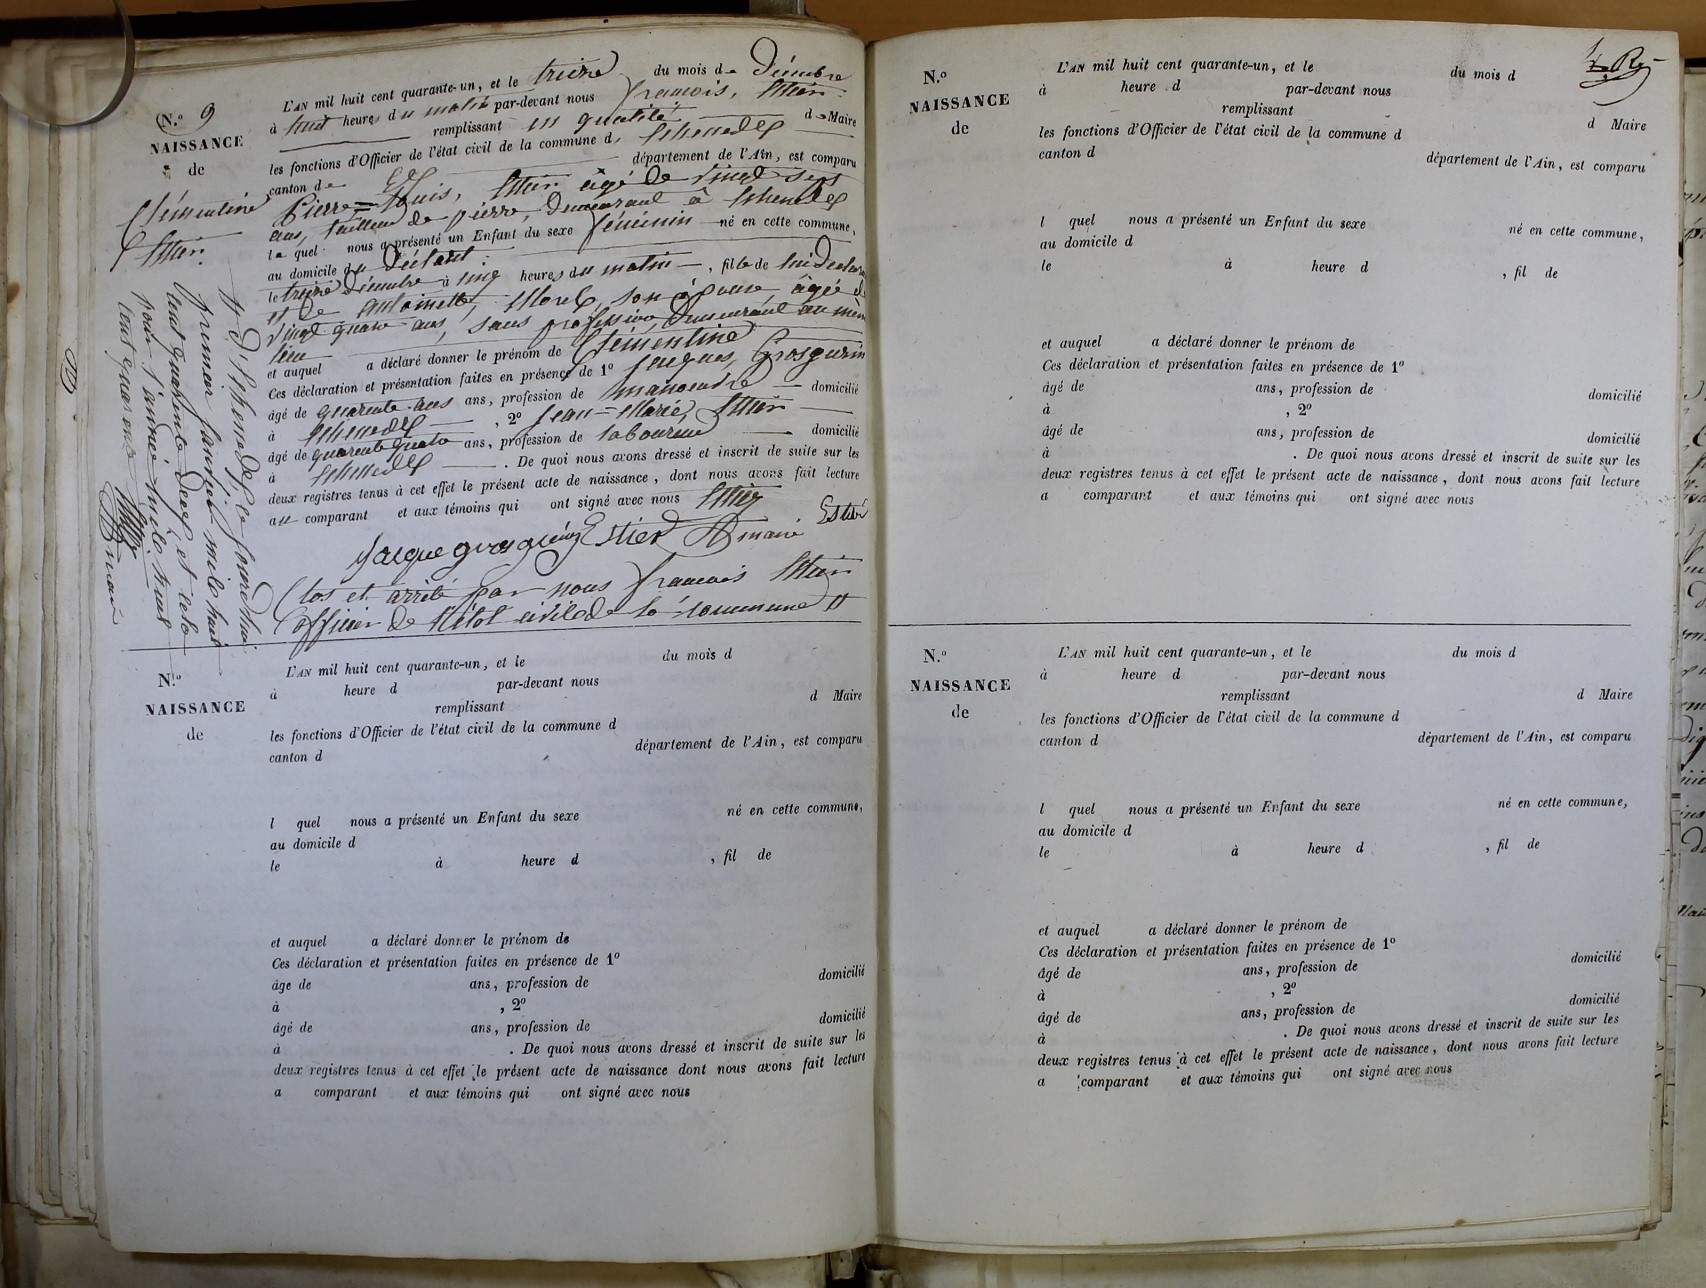 N.º 9
NAISSANCE
de
Clémentine
Estier.
L'AN mil huit cent quarante-un, et le treize du mois de Décembre
à huit heures du matin par-devant nous françois, Estier
remplissant en qualité de Maire
les fonctions d'Officier de l'état civil de la commune d'
canton de département de l'Ain, est comparu
Pierre=Louis, Estier âgé de vingt sept
ans, tailleur de pierre, demeurant à
le quel nous a présenté un Enfant du sexe féminin né en cette commune,
au domicile du Déclarant
le treize Décembre à cinq heures du matin, fille de lui déclarant
et de Antoinette, Morel, son épouse, âgée de
vingt quatre ans, sans profession, demeurant au même
lieu
et auquel a déclaré donner le prénom de Clémentine
Ces déclaration et présentation faites en présence de 1º Jacques, Grosgurin
âgé de quarante ans ans, profession de manoeuvre domicilié
à , 2º Jean=Marie, Estier
âgé de quarante quatre ans, profession de laboureur domicilié
à . De quoi nous avons dressé et inscrit de suite sur les
deux registres tenus à cet effet le présent acte de naissance, dont nous avons fait lecture
au comparant et aux témoins qui ont signé avec nous
Jacque grosgurin Estier maire Estier
Clos et arrêté par nous francois Estier
officier de l'état civil de la commune #
# d' le jourd'hui
premier janvier mil huit
cent quarante deux et cela
pour l'année mil huit
cent quarante
maire
N.º
NAISSANCE
de
L'AN mil huit cent quarante-un, et le du mois d
à heure d par-devant nous
remplissant d Maire
les fonctions d'Officier de l'état civil de la commune d
canton d département de l'Ain, est comparu
l quel nous a présenté un Enfant du sexe né en cette commune,
au domicile d
le à heure d , fil de
et auquel a déclaré donner le prénom de
Ces déclaration et présentation faites en présence de 1º
âge de ans, profession de domicilié
à , 2º
âgé de ans, profession de domicilié
à . De quoi nous avons dressé et inscrit de suite sur les
deux registres tenus à cet effet le présent acte de naissance dont nous avons fait lecture
a comparant et aux témoins qui ont signé avec nous
N.º
NAISSANCE
de
L'AN mil huit cent quarante-un, et le du mois d
à heure d par-devant nous
remplissant d Maire
les fonctions d'Officier de l'état civil de la commune d
canton d département de l'Ain, est comparu
l quel nous a présenté un Enfant du sexe né en cette commune,
au domicile d
le à heure d , fil de
et auquel a déclaré donner le prénom de
Ces déclaration et présentation faites en présence de 1º
âgé de ans, profession de domicilié
à , 2º
âgé de ans, profession de domicilié
à . De quoi nous avons dressé et inscrit de suite sur les
deux registres tenus à cet effet le présent acte de naissance, dont nous avons fait lecture
a comparant et aux témoins qui ont signé avec nous
N.º
NAISSANCE
de
L'AN mil huit cent quarante-un, et le du mois d
à heure d par-devant nous
remplissant d Maire
les fonctions d'Officier de l'état civil de la commune d
canton d département de l'Ain, est comparu
l quel nous a présenté un Enfant du sexe né en cette commune,
au domicile d
le à heure d , fil de
et auquel a déclaré donner le prénom de
Ces déclaration et présentation faites en présence de 1º
âgé de ans, profession de domicilié
à , 2º
âgé de ans, profession de domicilié
à . De quoi nous avons dressé et inscrit de suite sur les
deux registres tenus à cet effet le présent acte de naissance, dont nous avons fait lecture
a comparant et aux témoins qui ont signé avec nous